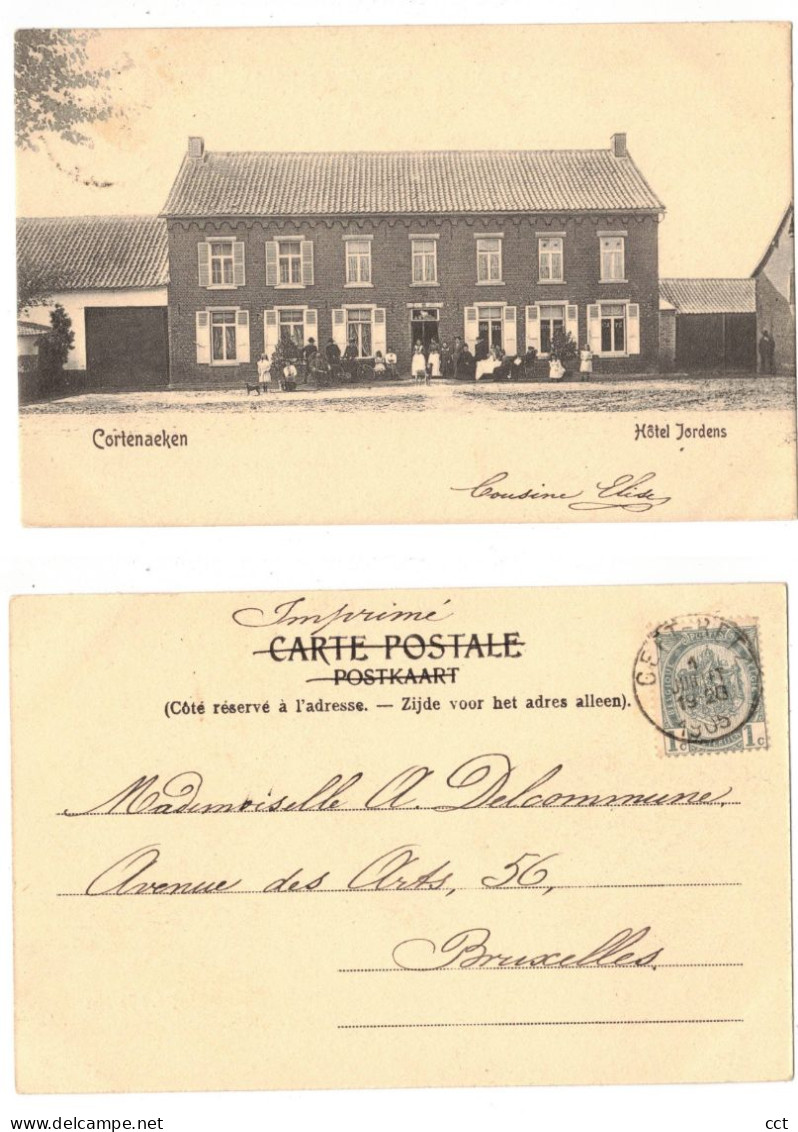 Cortenaeken
Hôtel Jordens
Cousine Elise
Imprimé
CARTE POSTALE
POSTKAART
(Côté réservé à l'adresse. — Zijde voor het adres alleen).
1
19-20
1905
1c 1c
Mademoiselle A. Delcommune,
Avenue des Arts, 56,
Bruxelles
cct